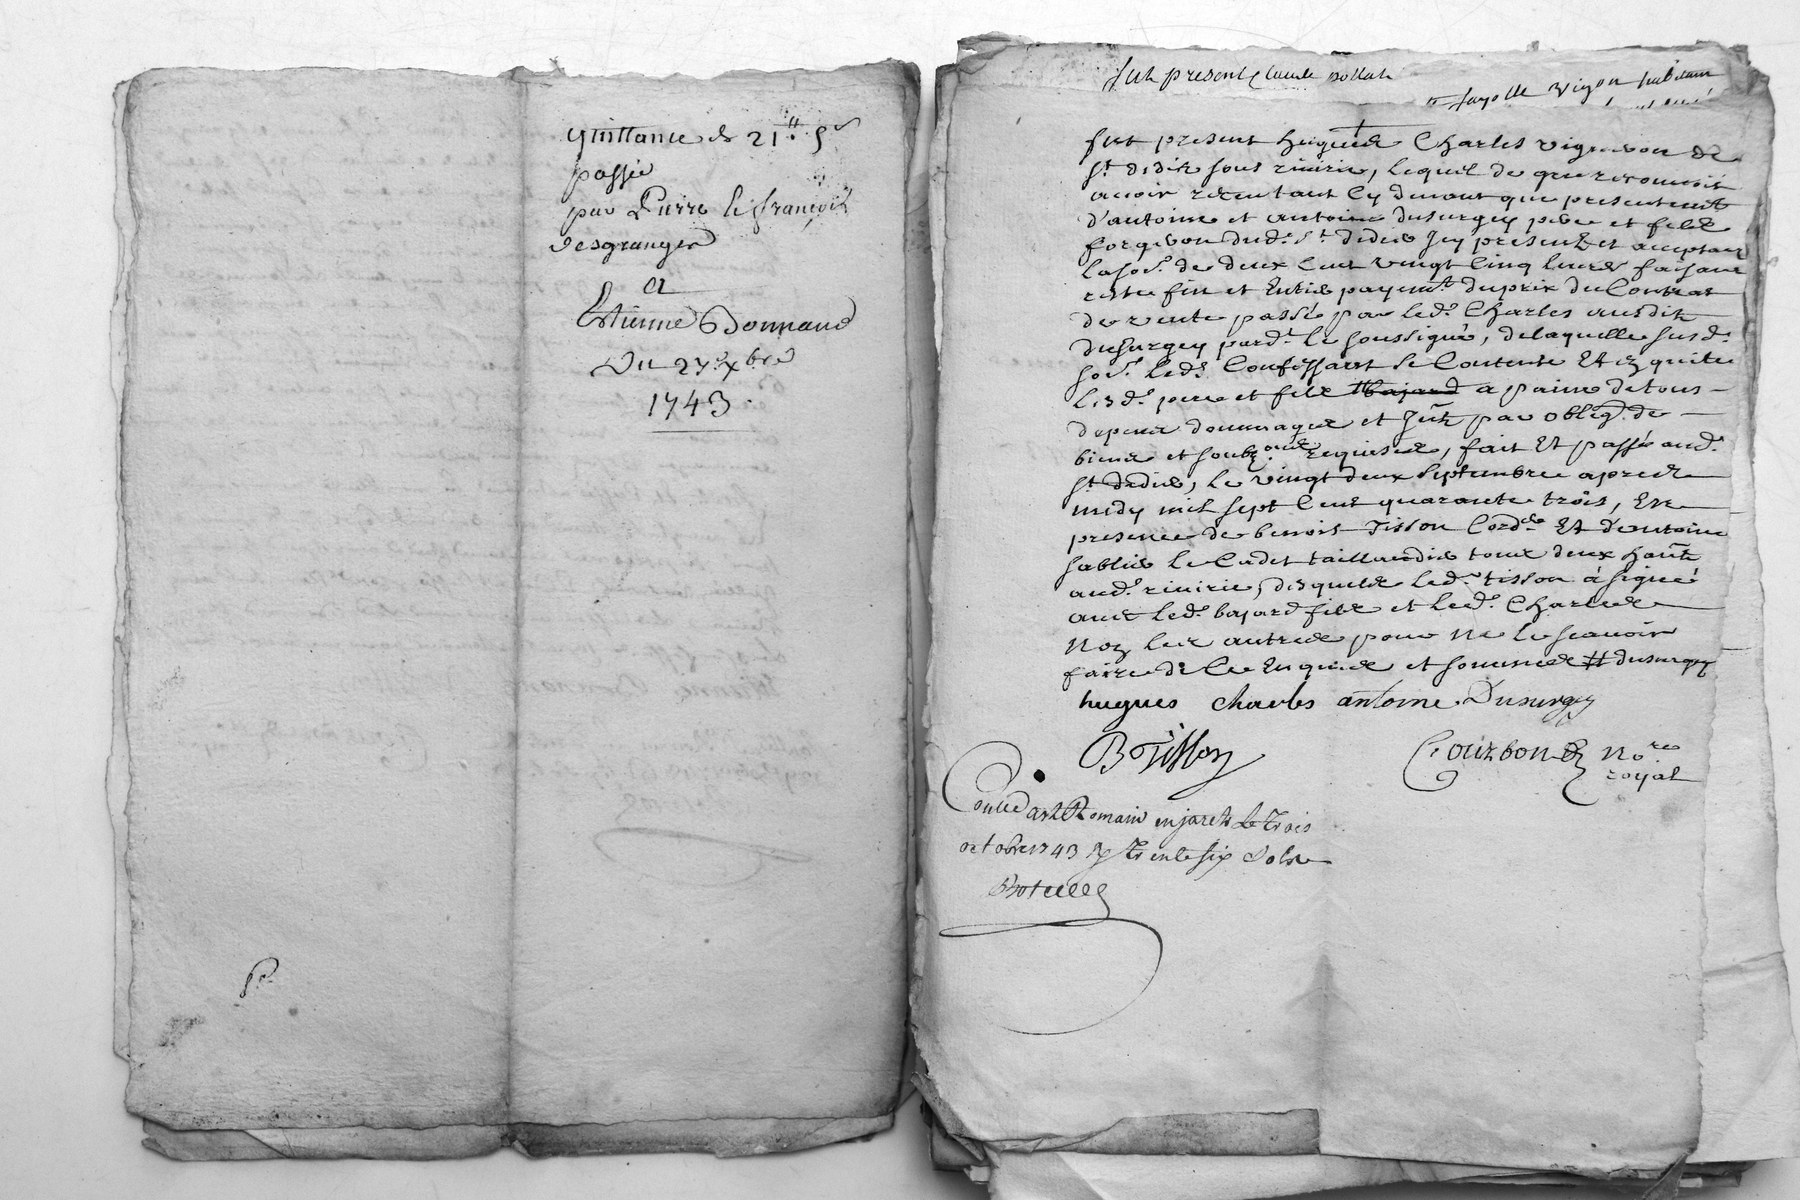 quittance de 21ⁿ 5 s
passée
par Pierre le françois
desgranges
a
Estienne Bonnand
Du 27e xbre
1743.
fut present Claude
fayolle vigon habitant
fut present hugues Charles vigneron de
st didier sous riuirie, lequel de gre reconnoit
auoir receu tant cy deuant que presentemt
d'antoine et antoine dusurgey pere et fils
forgeron dud. st didier Icy presents et acceptant
la so.e de deux cent vingt cinq liures faisant
reste fin et Entier payemt du prix du Contrat
de vente passé par led. Charles ausdits
dusurgey pard.t le soussigné, de laquelle susd.
so.e led. Confessant se Contente Et en quitte
lesd. pere et fils bajard a paine de tous
depens dommages et Intz par oblig. de
biens et soubz.ons requises, fait Et passé aud.
st didier, le vingt deux septembre apres
midy mil sept cent quarante trois, En
presence de benoit Tisson Cord.er Et d'antoine
sablier le Cadet taillandier tous deux habts
aud. riuirie, desquels led. tisson à signé
auec led. bajard fils et led. Charles
Non les autres pour ne le scauoir
faire de ce Enquis et sommés # dusurgey
hugues charles antoine Dusurgey
B Tisson
Courbon no.re
royal
Contlé a st Romain en jarets Le Trois
octobre 1743 R Trente six sols